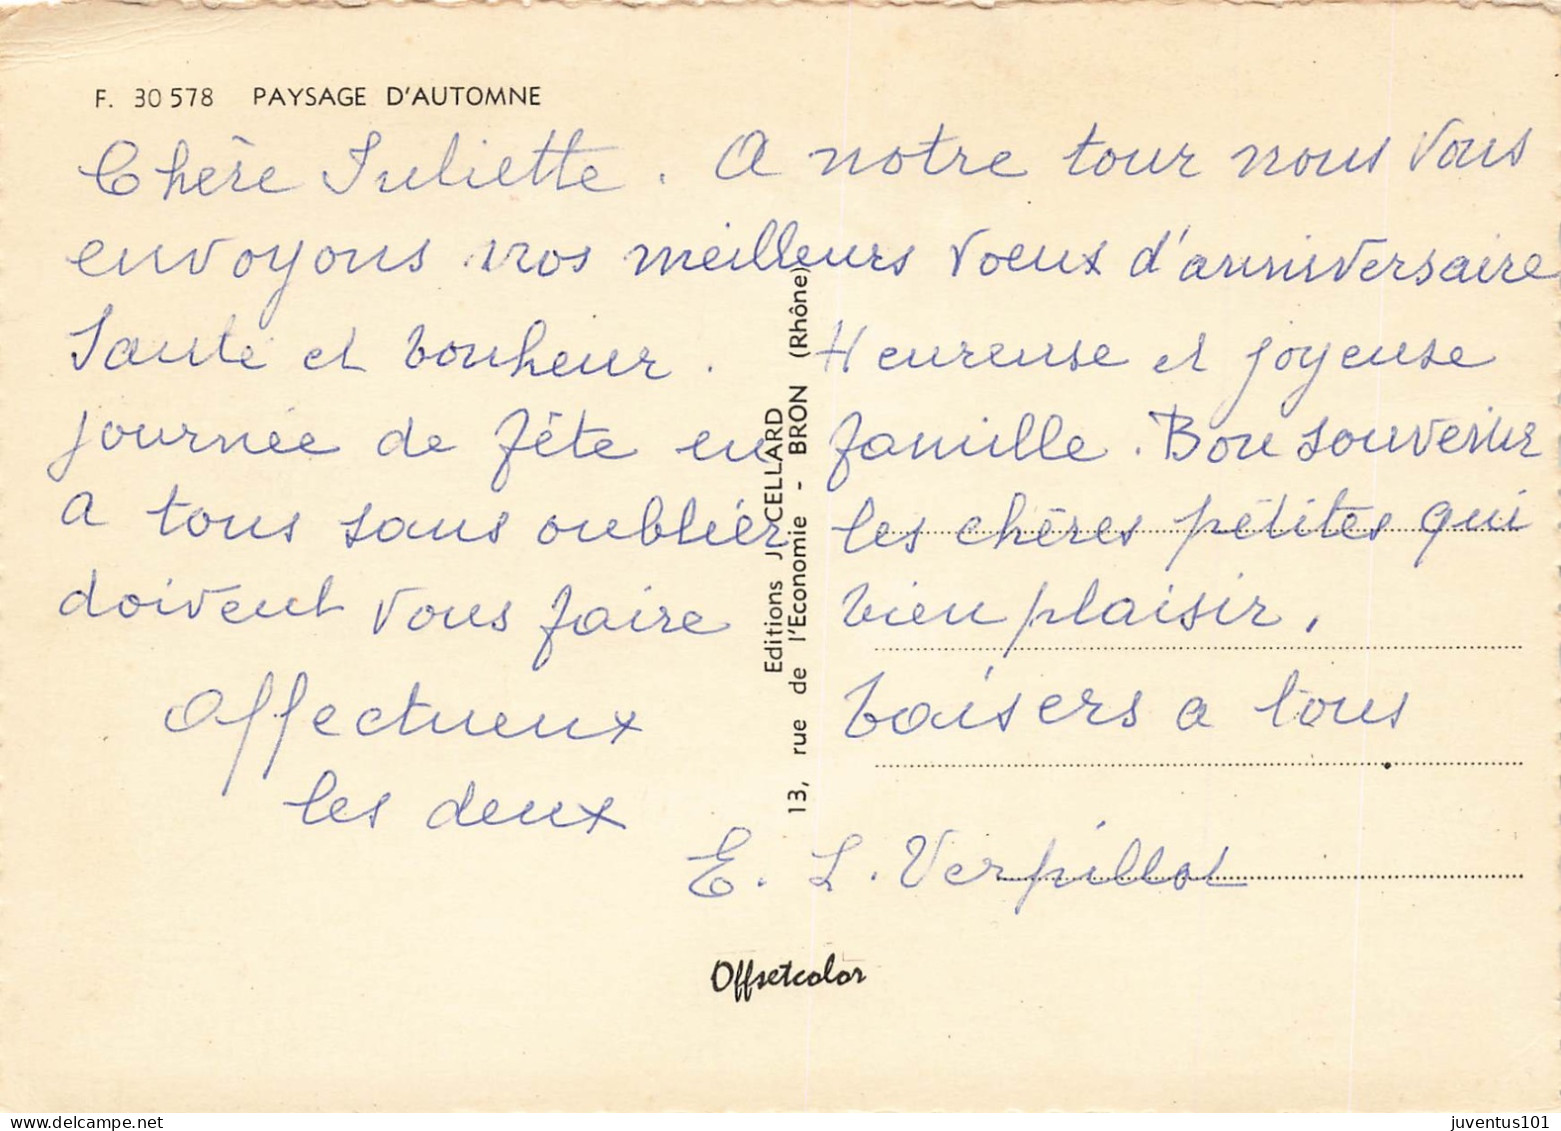 F. 30 578 PAYSAGE D'AUTOMNE
Chère Juliette. A notre tour nous vous
envoyons nos meilleurs voeux d'anniversaire
Santé et bonheur. Heureuse et joyeuse
journée de fête en famille. Bon souvenir
a tous sans oublier les chères petites qui
doivent vous faire bien plaisir,
Affectueux baisers a tous
les deux
E. L. Verpillot
Editions J. CELLARD
13, rue de l'Economie - BRON (Rhône)
Offsetcolor
juventus101